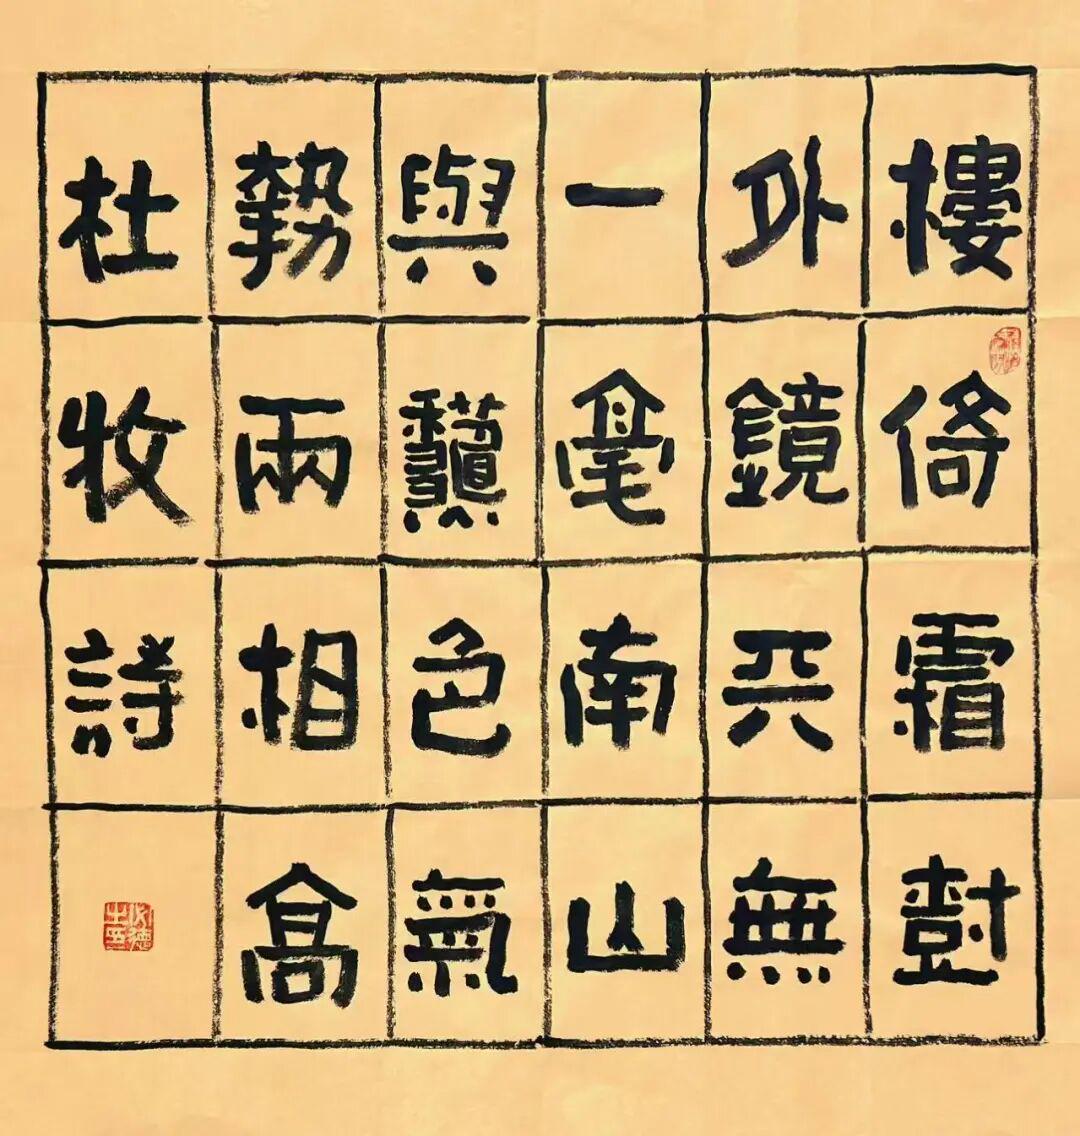 樓倚霜尌
外鏡兲無
一毫南山
與龝色氣
勢兩相高
杜牧詩